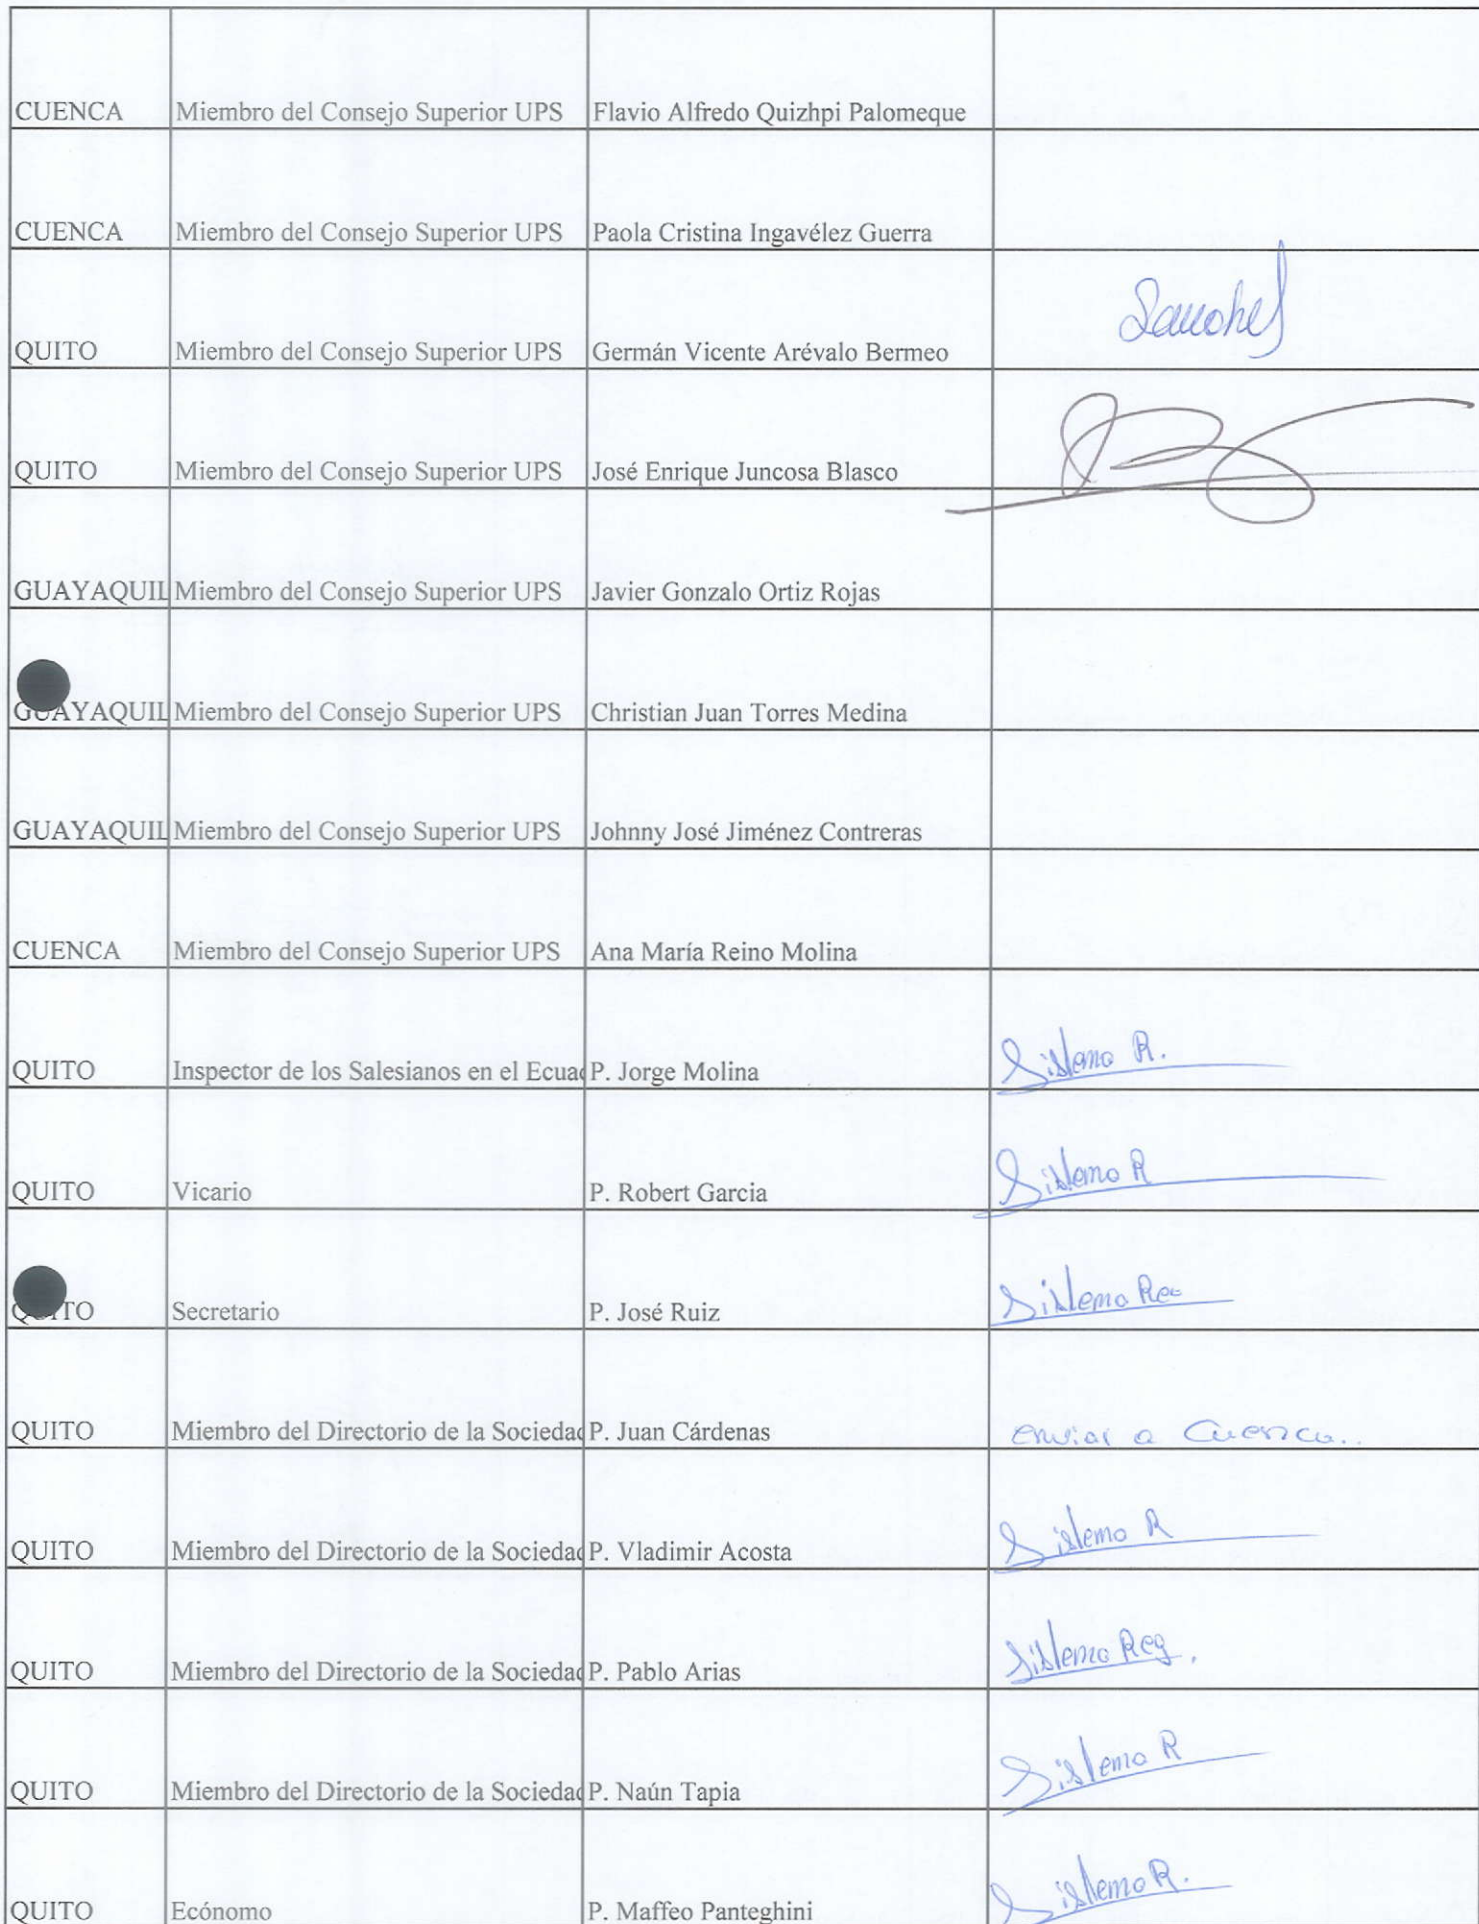 CUENCA Miembro del Consejo Superior UPS Flavio Alfredo Quizhpi Palomeque
CUENCA Miembro del Consejo Superior UPS Paola Cristina Ingavélez Guerra
QUITO Miembro del Consejo Superior UPS Germán Vicente Arévalo Bermeo
QUITO Miembro del Consejo Superior UPS José Enrique Juncosa Blasco
GUAYAQUIL Miembro del Consejo Superior UPS Javier Gonzalo Ortiz Rojas
GUAYAQUIL Miembro del Consejo Superior UPS Christian Juan Torres Medina
GUAYAQUIL Miembro del Consejo Superior UPS Johnny José Jiménez Contreras
CUENCA Miembro del Consejo Superior UPS Ana María Reino Molina
QUITO Inspector de los Salesianos en el Ecuad P. Jorge Molina Sistema R.
QUITO Vicario P. Robert Garcia Sistema R
QUITO Secretario P. José Ruiz Sistema
QUITO Miembro del Directorio de la Sociedad P. Juan Cárdenas enviar a Cuenca..
QUITO Miembro del Directorio de la Sociedad P. Vladimir Acosta Sistema R
QUITO Miembro del Directorio de la Sociedad P. Pablo Arias Sistema Reg.
QUITO Miembro del Directorio de la Sociedad P. Naún Tapia Sistema R
QUITO Ecónomo P. Maffeo Panteghini Sistema R.